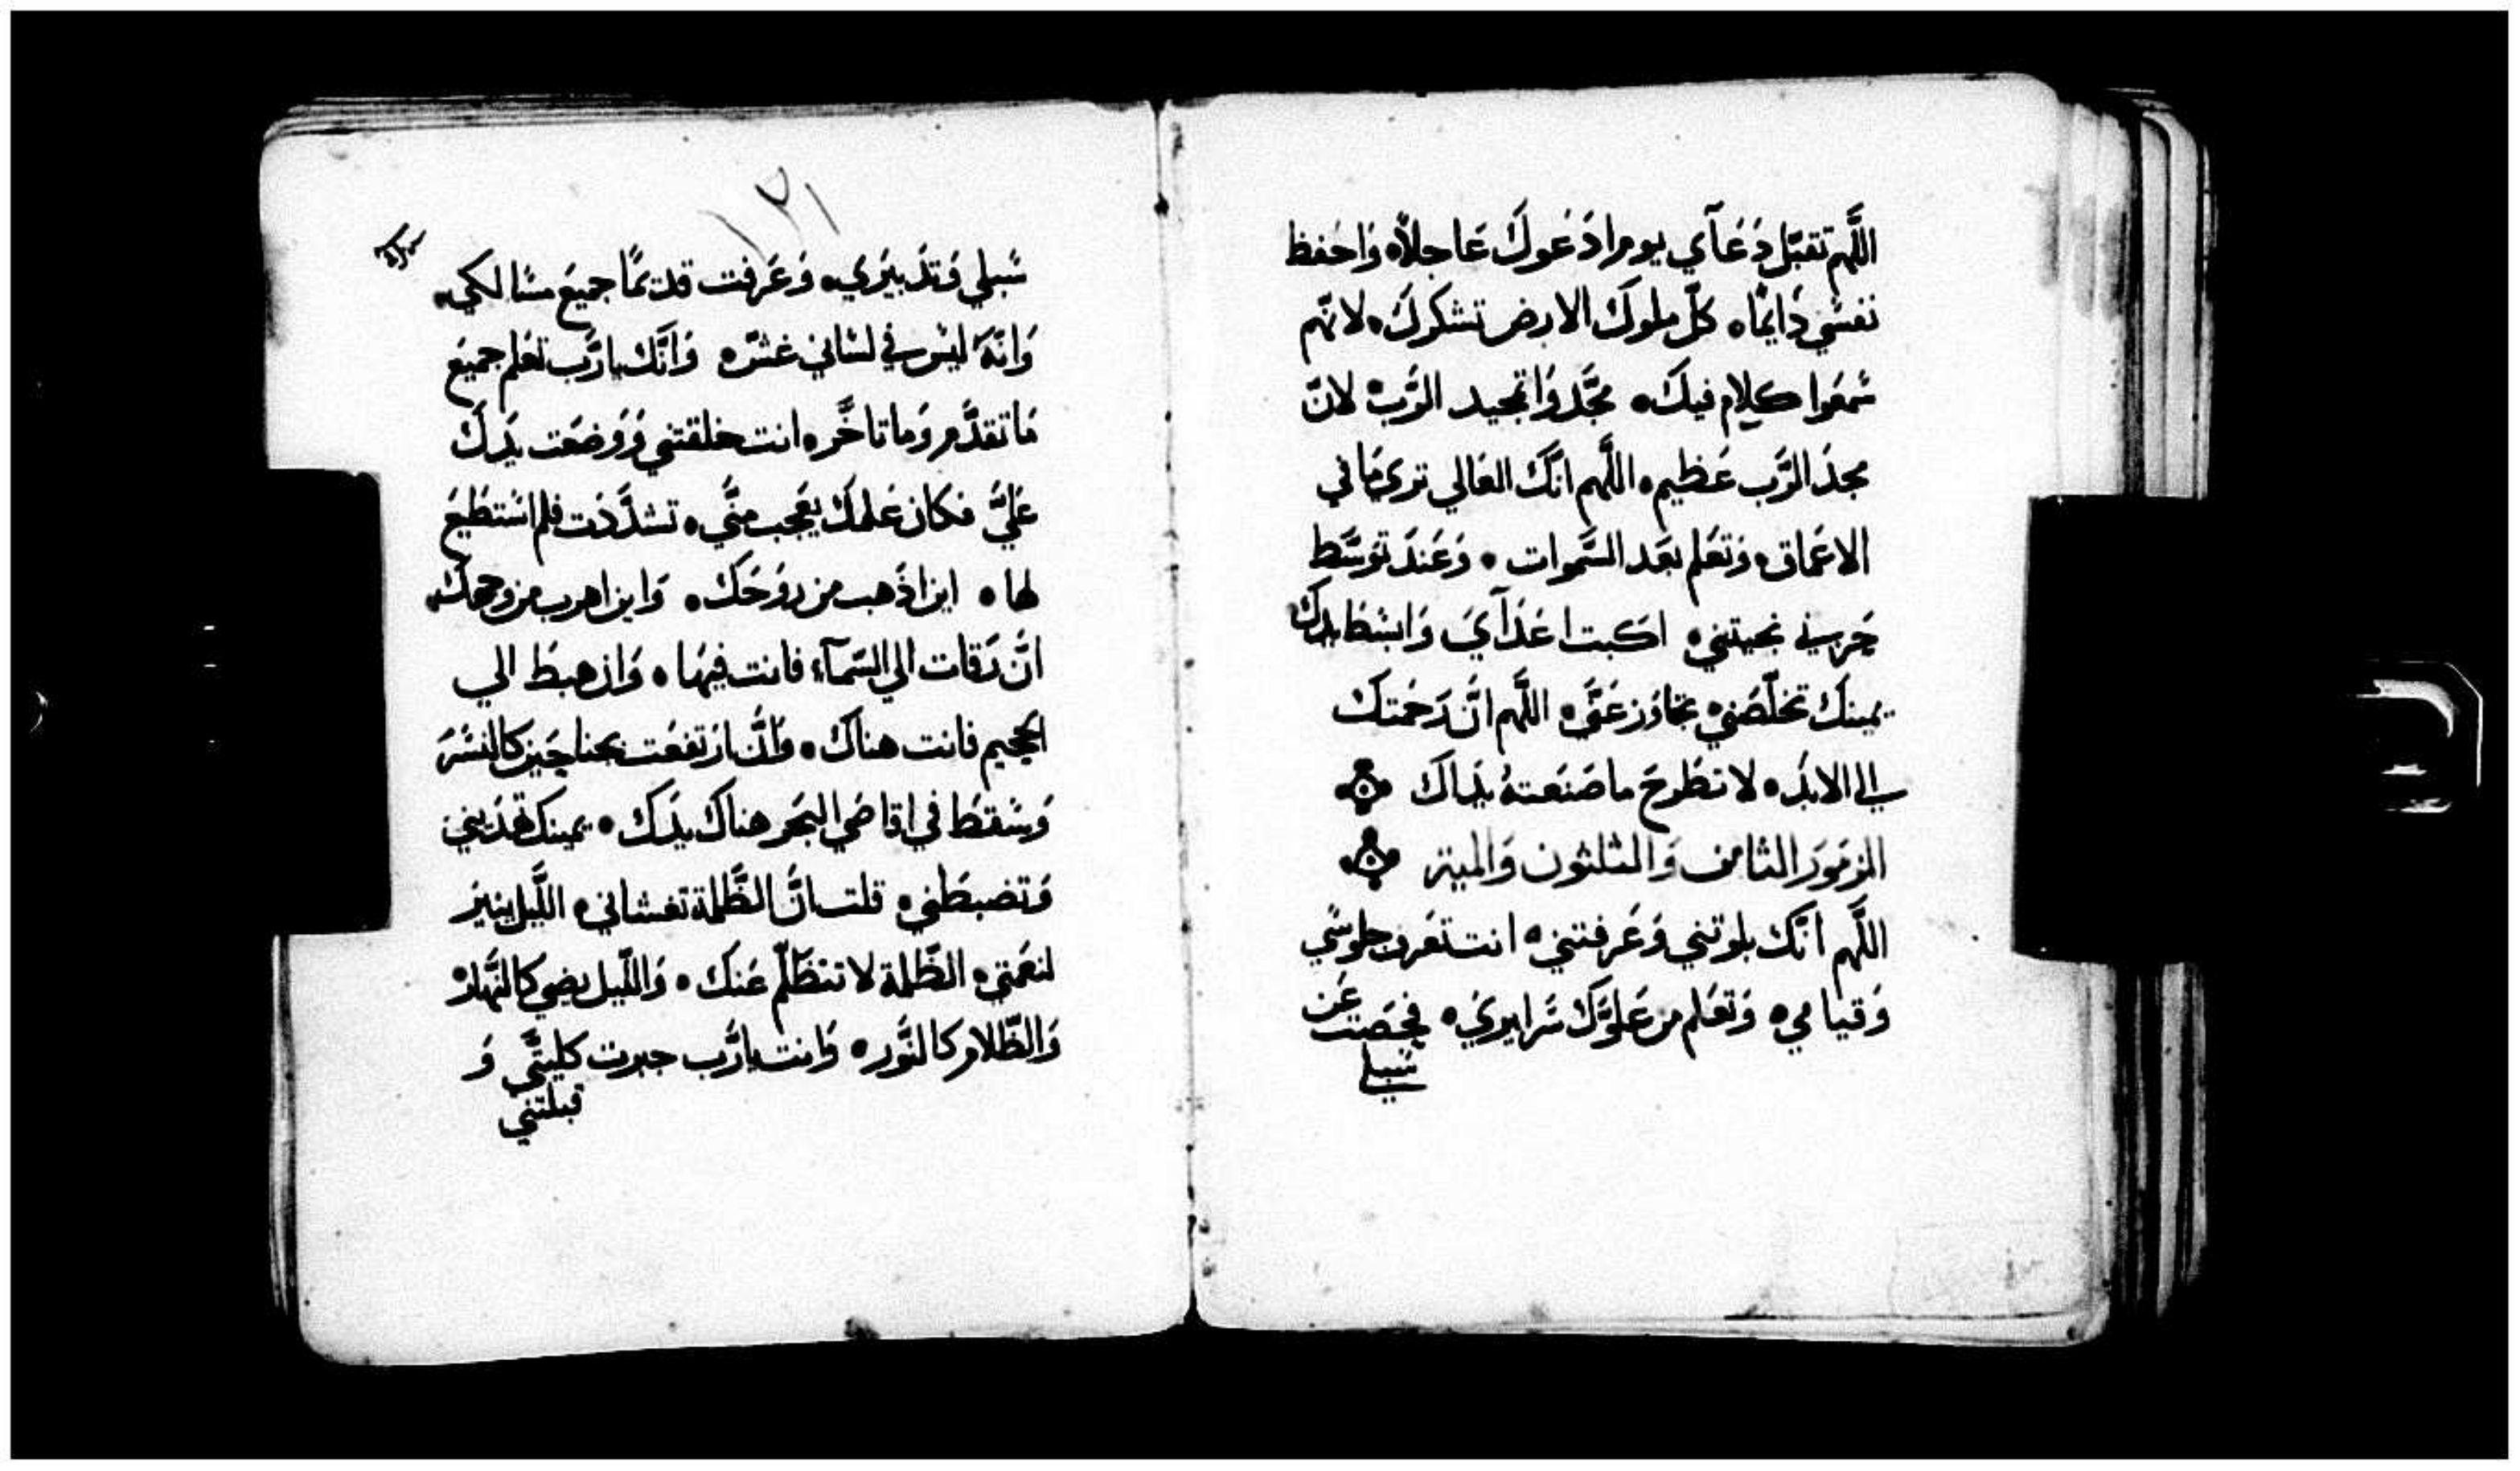 اللَّهم تقبَّل دُعَآي يوم ادعوك عَاجلاً • وَاحفظ
نفسي دَايمًا • كلّ ملوك الارض تشكرك • لانّهم
سَمعَوا كلام فيك • مجَّدوَا تمجيد الرَّب • لانّ
مجدَ الرَّب عَظيم • اللَّهم انَّك العَالي ترى مَا في
الاعمَاق • وَتعَلم بعَد السَّموات • وَعَندَ توَسَّط
حَربي نجيتني • اكبت اعَدَآيَ وَابسَط يدك
يمينك تخلّصَني • تجَاوَز عَنَّي • اللَّهم انَّ رَحمَتك
الي الابدَ • لا تطَرحَ ما صَنعَتهُ يدَاك
المزمَورَ الثامن وَالثلثون وَالميه
اللَّهم انَّك بلوتني وَعَرفتني • انت تعَرف جلوسَي
وَقيامي • وَتعَلم من عَلوَّك سَرايري • فحَصَت عَن
سَبلي
١٢١
سَبلي وَتدَبيرَي • وَعَرفت قديمًا جميعَ مسَالكي •
وَانّهَ ليسَ في لسَاني غشّ • وَانَّك يارَّب تعَلم جميعَ
مَا تقدَّم وَما تاخَّر • انت خلقتني وَوَضعَت يدَك
عَليَّ فكان عَلمك يعَجب منَّي • تشدَّدَت فلم اسَتطَيعَ
لها • اين اذَهب من روَحَك • وَاين اهرب من وجهك •
انَّ رَقات الي السَّمآء فانت فيهَا • وَان هبطَ الي
الجحيم فانت هناك • وَانَّ ارَتفعَت بجناحَين كالنسَرَ
وَسَقطَ في اقاصَي البحَر هناك يدَك • يمينك تهَديني
وَتضبطَني • قلت انَّ الظَّلمة تغشاني • اللَّيل ينيرَ
لنعَمتي • الظّلمة لا تتظَلّم عَنك • وَاللّيل يضي كالنَّهار
وَالظّلام كالنَّور • وَانت يارَّب جبرت كليتَّي وَ
قبلتني